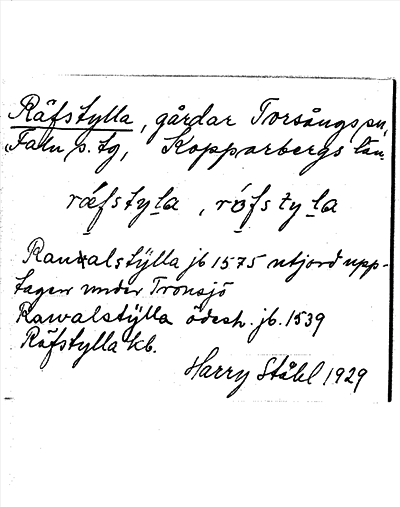 Räfstylla, gårdar Torsångs sn,
Falu s. tg, Kopparbergs län.
räfstyla, röfstyla
Rawalstÿlla jb 1575 utjord upp-
tagen under Tronsjö
Rawalstÿlla ödesh. jb. 1539
Räfstylla kb.
Harry Ståhl 1929